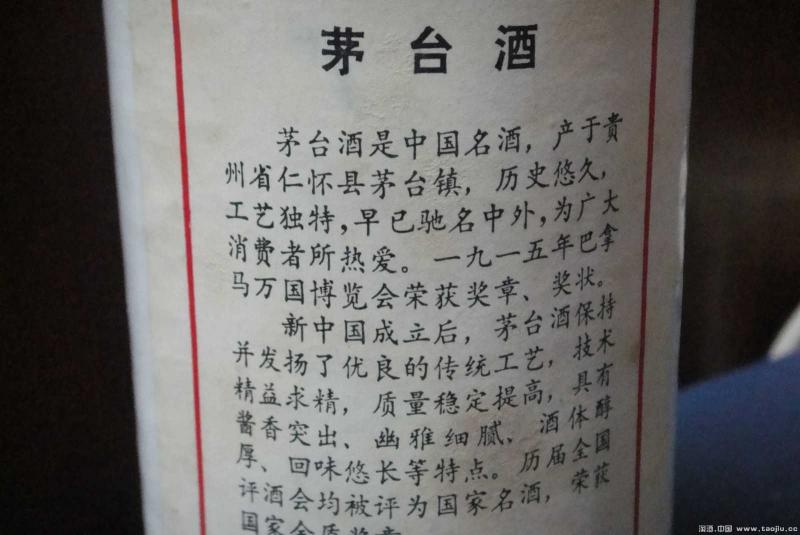 茅台酒
茅台酒是中国名酒，产于贵
州省仁怀县茅台镇，历史悠久，
工艺独特，早已驰名中外，为广大
消费者所热爱。一九一五年巴拿
马万国博览会荣获奖章、奖状。
新中国成立后，茅台酒保持
并发扬了优良的传统工艺，技术
精益求精，质量稳定提高，具有
酱香突出、幽雅细腻、酒体醇
厚、回味悠长等特点。历届全国
评酒会均被评为国家名酒，荣获
国家金质奖章
淘酒.中国 www.taojiu.cc